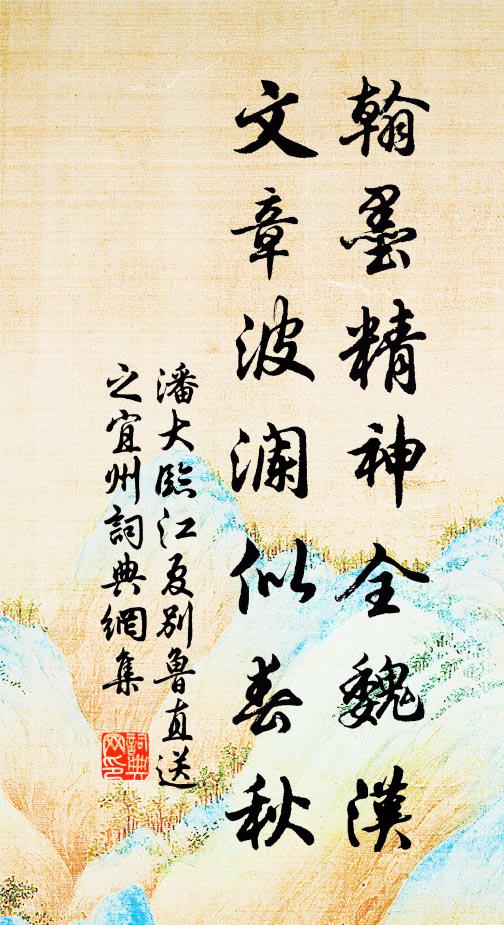 翰墨精神全魏漢
文章波澜似春秋
潘大臨江夏别魯直送
之宜州詞典網集
詞典网印